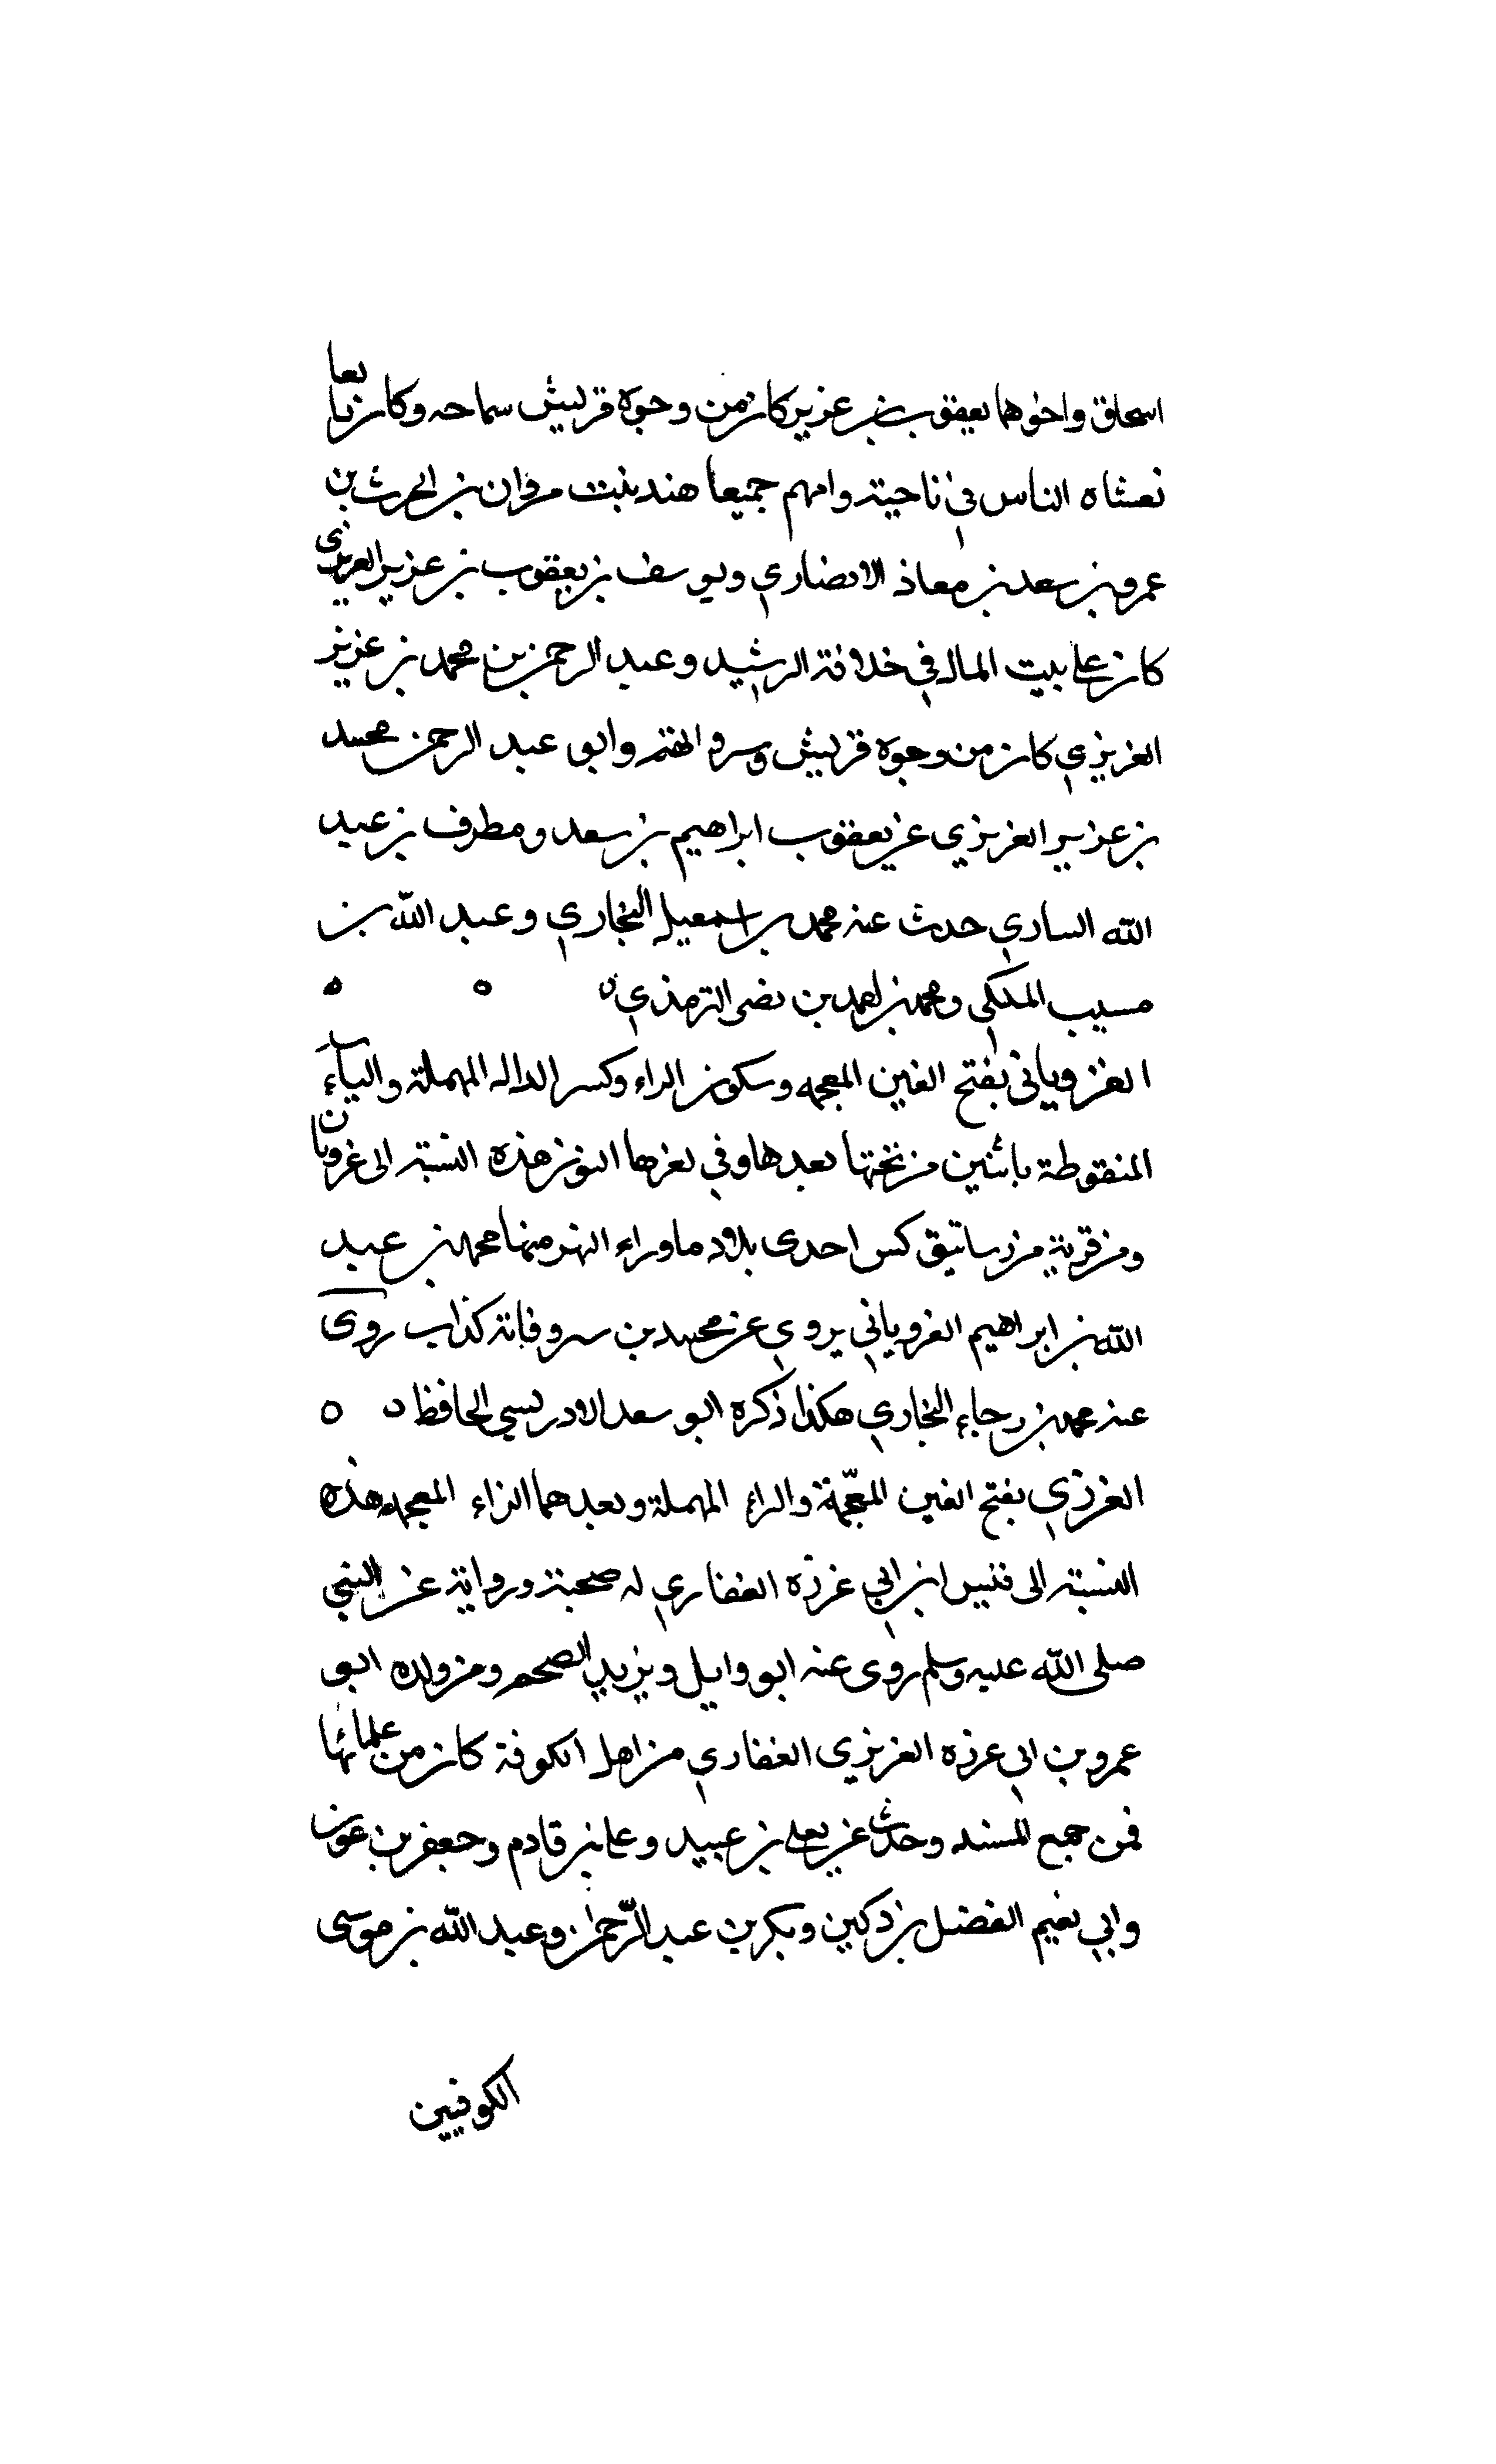 اسحاق واخوهما يعقوب بن غرير كان من وجوه قريش سماحه وكان ربما
تعشاه الناس في ناحية وامهم جميعا هند بنت مروان بن الحرث بن
عمرو بن سعد بن معاذ الانصاري ويوسف بن يعقوب بن غرير الغريري
كان على بيت المال في خلافة الرشيد وعبد الرحمن بن محمد بن غرير
الغريري كان من وجوه قريش وسرواتهم وابو عبد الرحمن محمد
بن غرير الغريري عن يعقوب ابراهيم بن سعد ومطرف بن عبد
الله الساري حدث عنه محمد بن اسمعيل البخاري وعبد الله بن
مسيب المكي ومحمد بن احمد بن نصر الترمذي ه ه ه
الغزوياني بفتح الغين المعجمه وسكون الراء وكسر الدال المهملة والياء
المنقوطة باثنين من تحتها بعدها وفي اخرها النون هذه النسبة الى غرويان
ومن قرية من رساتيق كس احدى بلاد ماوراء النهر منها محمد بن عبد
الله بن ابراهيم الغروياني يروي عن محمد بن كذاب روى
عنه محمد بن رجاء البخاري هكذا ذكره ابو سعد الادريسي الحافظ ه ه
الغرزي بفتح الغين المعجمة والراء المهملة وبعدهما الزاء المعجمه هذه
النسبة الى قيس ابن ابي غرزه الغفاري له صحبة ورواية عن النبي
صلى الله عليه وسلم روى عنه ابو وايل ويزيد ومن ولده ابو
عمرو بن ابي غرزه الغريزي الغفاري من اهل الكوفة كان من علمائها
فمن جمع المسند وحدث عن يعلى بن عبيد وعلى بن قادم وجعفر بن عون
وابي نعيم الفضل بن دكين وبكر بن عبد الرّحمن وعبد الله بن موسى
الكوفيين